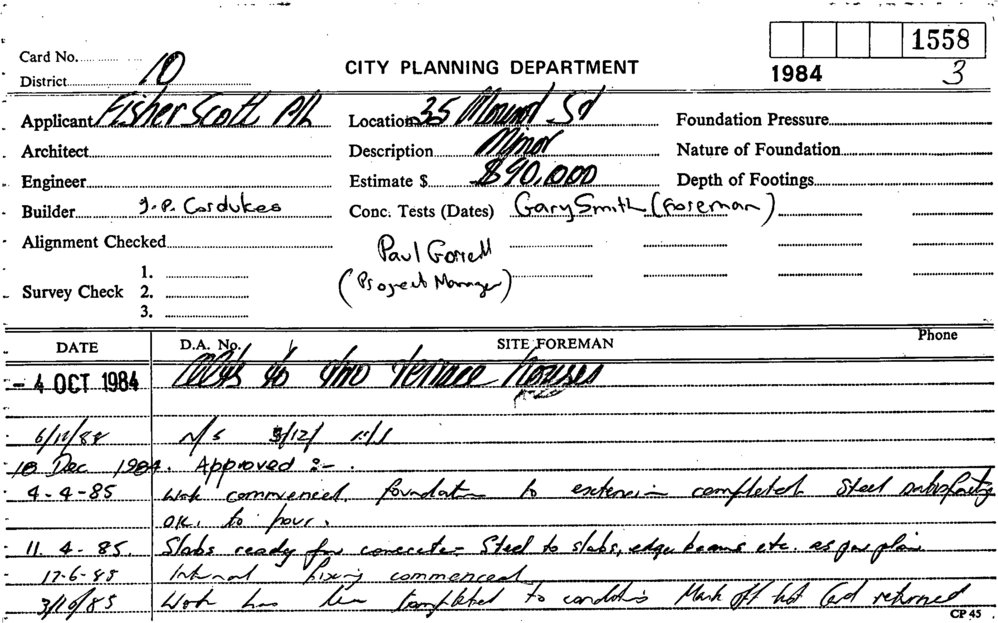 1558
Card No.
CITY PLANNING DEPARTMENT
1984 3
District 10
Applicant Fisher Scott P/L Location 35 Mount St Foundation Pressure
Architect Description Minor Nature of Foundation
Engineer Estimate $ $90,000 Depth of Footings
Builder J.P. Cordukes Conc. Tests (Dates) Gary Smith (Foreman)
Alignment Checked Paul Gorrell
(Project Manager)
1.
Survey Check 2.
3.
DATE D.A. No. SITE FOREMAN Phone
- 4 OCT 1984 Alts to two terrace houses
6/11/84 N/S 3/12/ N/S
18 Dec 1984. Approved :-
4-4-85 Work commenced foundation to extension completed Steel satisfactory
OK. to pour.
11. 4-85. Slabs ready for concrete - Steel to slabs, edge beams etc. as per plan
17-6-85 Internal fixing commenced
3/10/85 Work has been completed to conditions Mark off list Card returned
CP 45